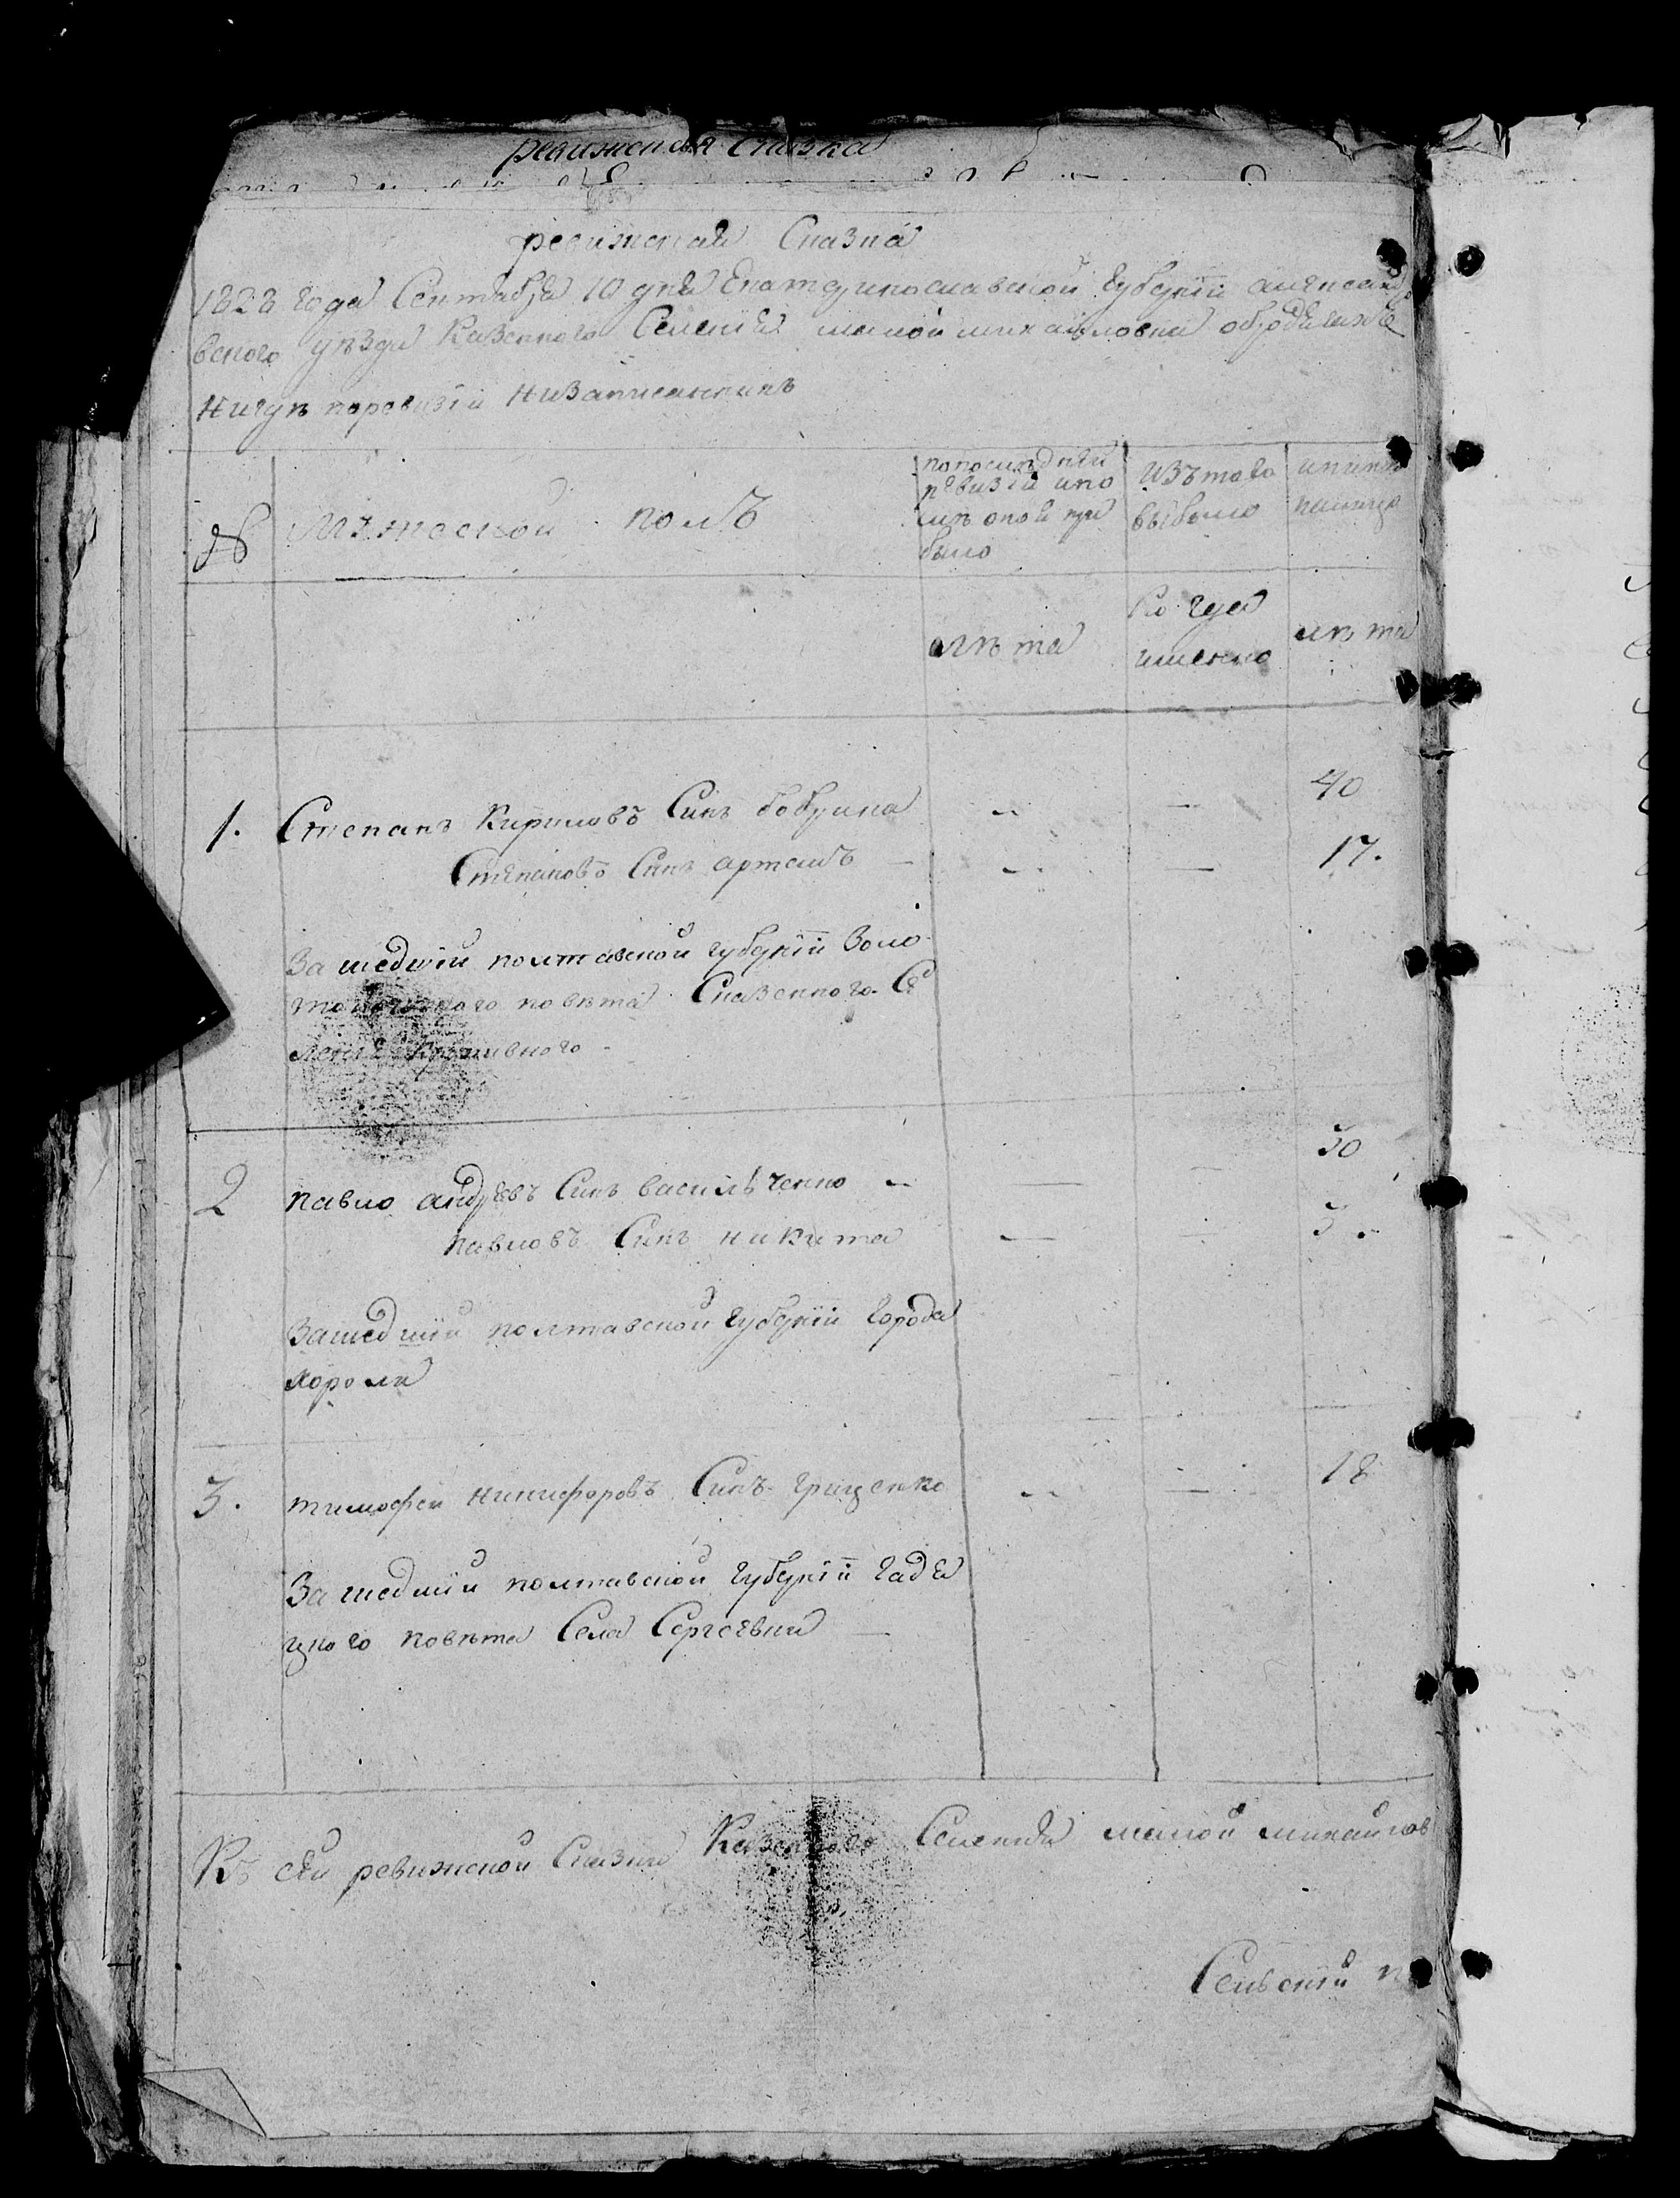 ревижская Сказка
ревижская Сказка
1828 года Сентября 10 дня Екатеринославской Губернїи александро
вского уѣзда Казенного Селенїя малой михайловки обродягахъ
Нигдѣ поревизїи Низаписанныхъ
№ Мужеской полъ
попоследней ревизїи ипослѣ оной прибыло
Изътого выбыло
инынѣ налицо
лѣта
Когда именно
лѣта
1. Степанъ Кириловъ Синъ бобрина 40
Степановъ Синъ артемъ 17.
Зашедшїй полтавской губернїи Золо
тоношского повѣта Сказенного Се
ленїя Кропивного
2 павло андреевъ Синъ василѣченко 30
павловъ Синъ никита 3.
Зашедшїй полтавской Губернїи города
хорола
3. тимофей никифоровъ Синъ грищенко 18
Зашедшїй полтавской Губернїи Гадя
цкого повѣта Села Сергеевки
Къ сей ревижской Сказки Казенного Селенїя малой михайлов
Селскїй